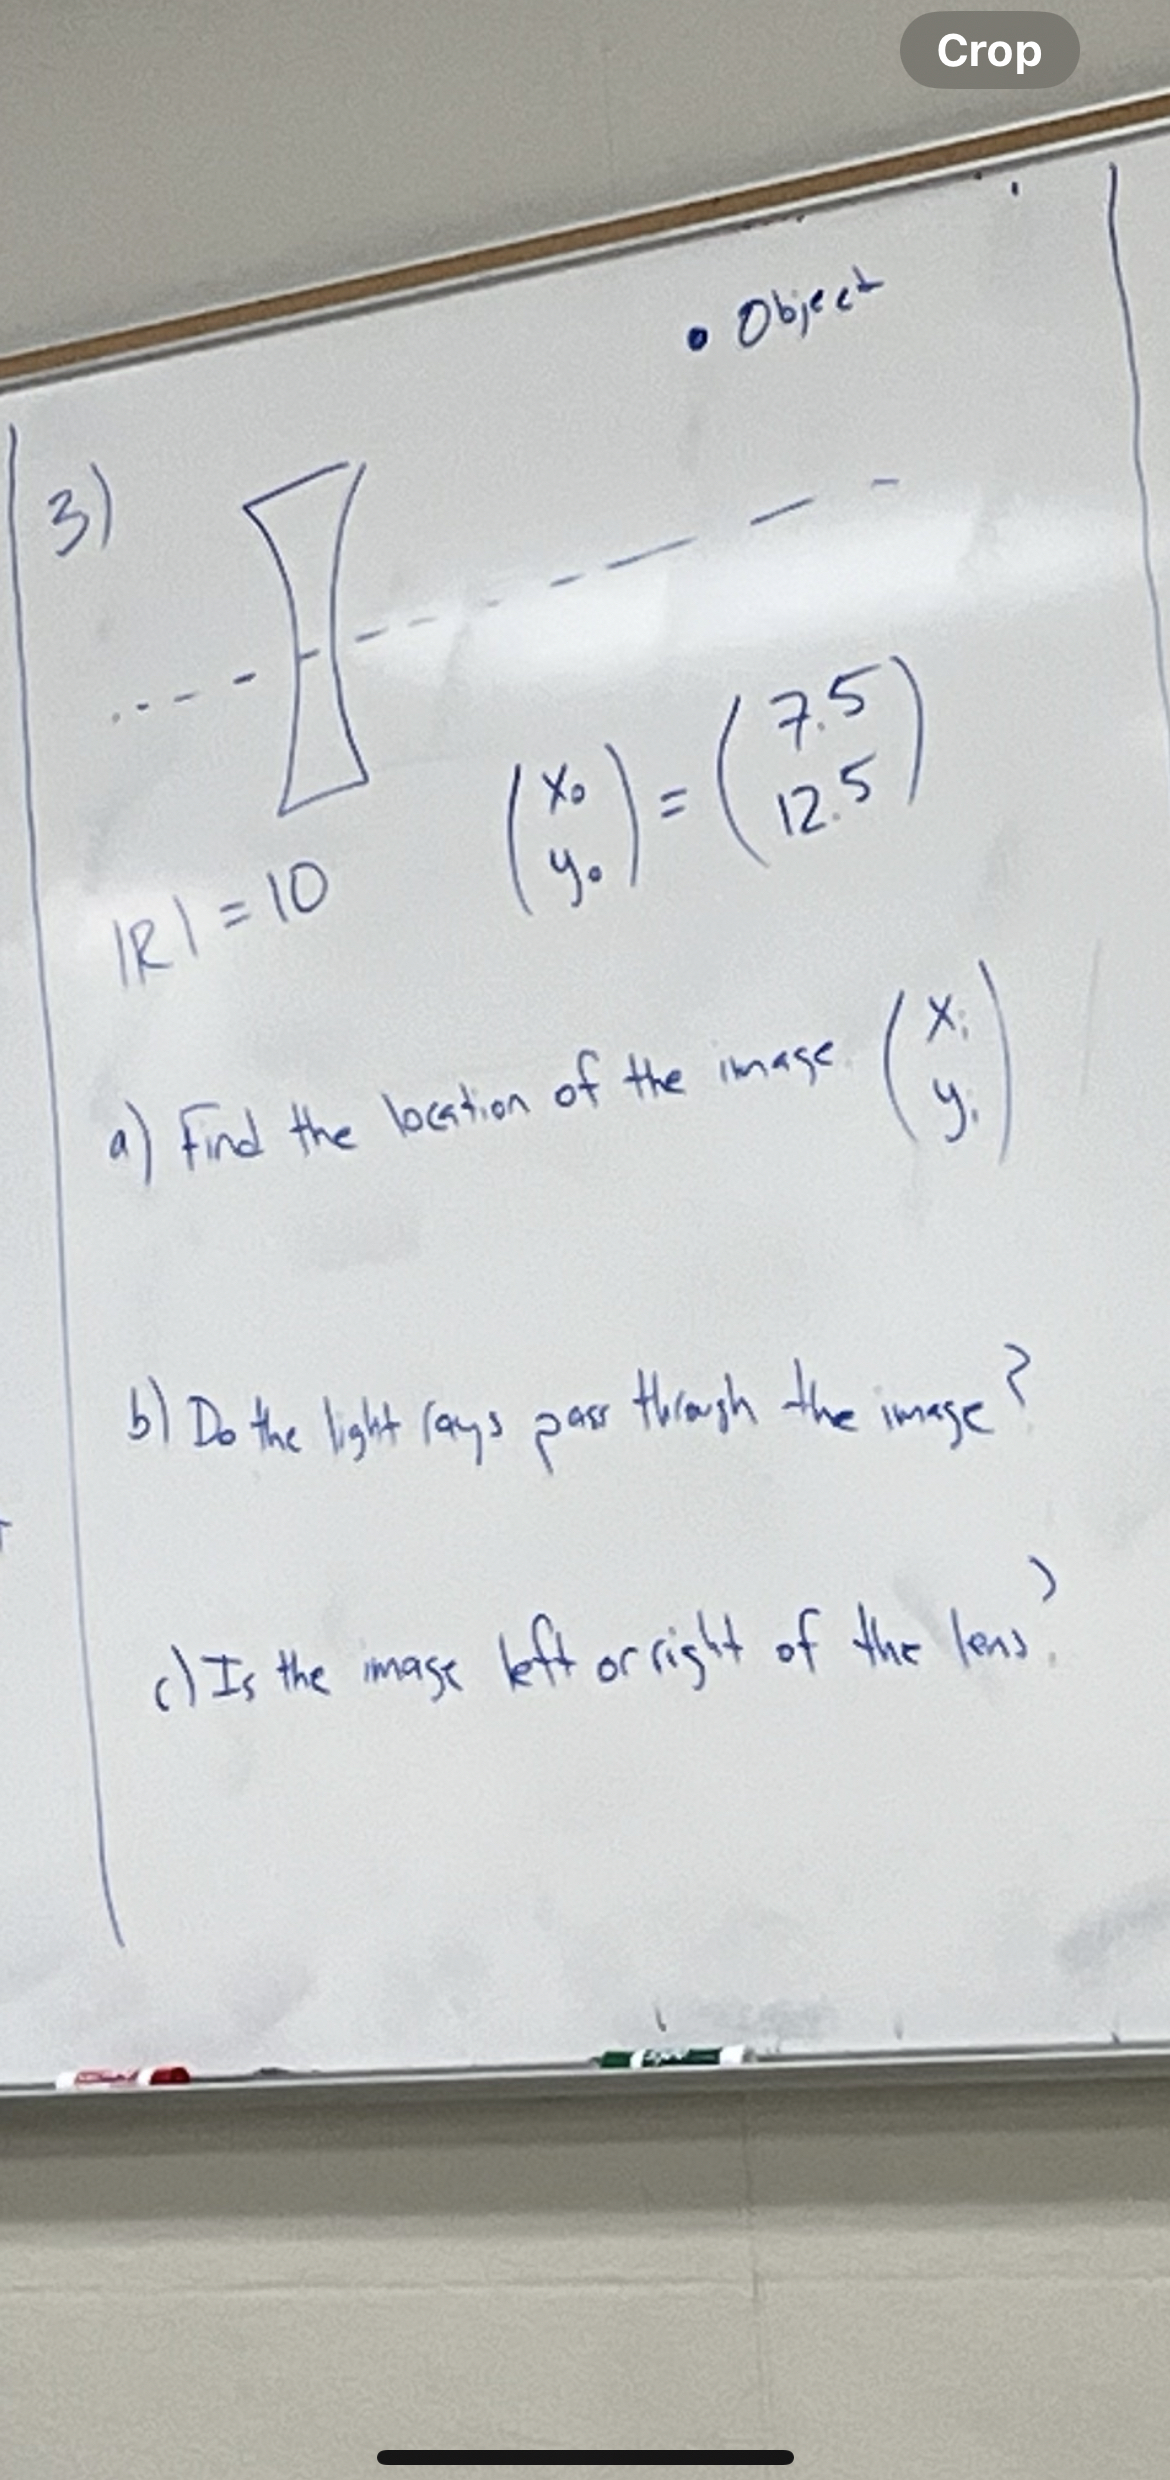 Crop
• Object
3)
|R| = 10
(x₀ y₀) = (7.5 12.5)
a) Find the location of the image. (xᵢ yᵢ)
b) Do the light rays pass through the image?
c) Is the image left or right of the lens?